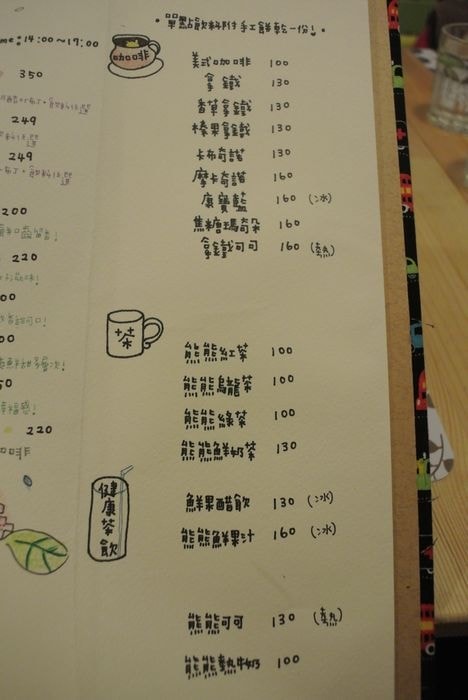 •單點飲料附手工餅乾一份!•
me:14:00~17:00
咖啡
美式咖啡 100
拿鐵 130
香草拿鐵 130
榛果拿鐵 130
卡布奇諾 130
摩卡奇諾 160
康寶藍 160 (冰)
焦糖瑪奇朵 160
拿鐵可可 160 (熱)
350
249
249
200
220
00
00
50
220
咖啡
茶
熊熊紅茶 100
熊熊烏龍茶 100
熊熊綠茶 100
熊熊鮮奶茶 130
健康茶飲
鮮果醋飲 130 (冰)
熊熊鮮果汁 160 (冰)
熊熊可可 130 (熱)
熊熊熱牛奶 100